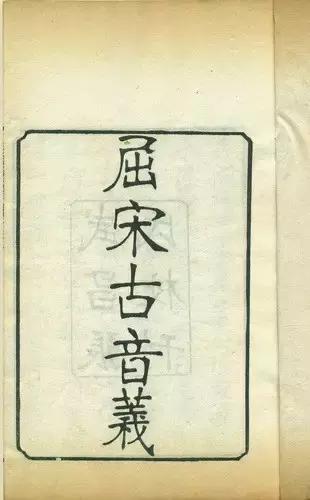 屈宋古音義